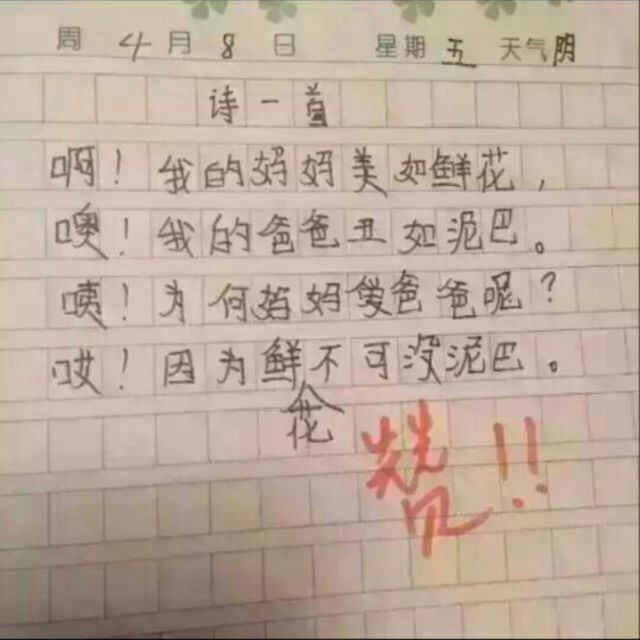 周 4 月 8 日 星期 五 天气 阴
诗一首
啊！我的妈妈美如鲜花，
噢！我的爸爸丑如泥巴。
咦！为何妈妈爱爸爸呢？
哎！因为鲜花不可没泥巴。
赞！！